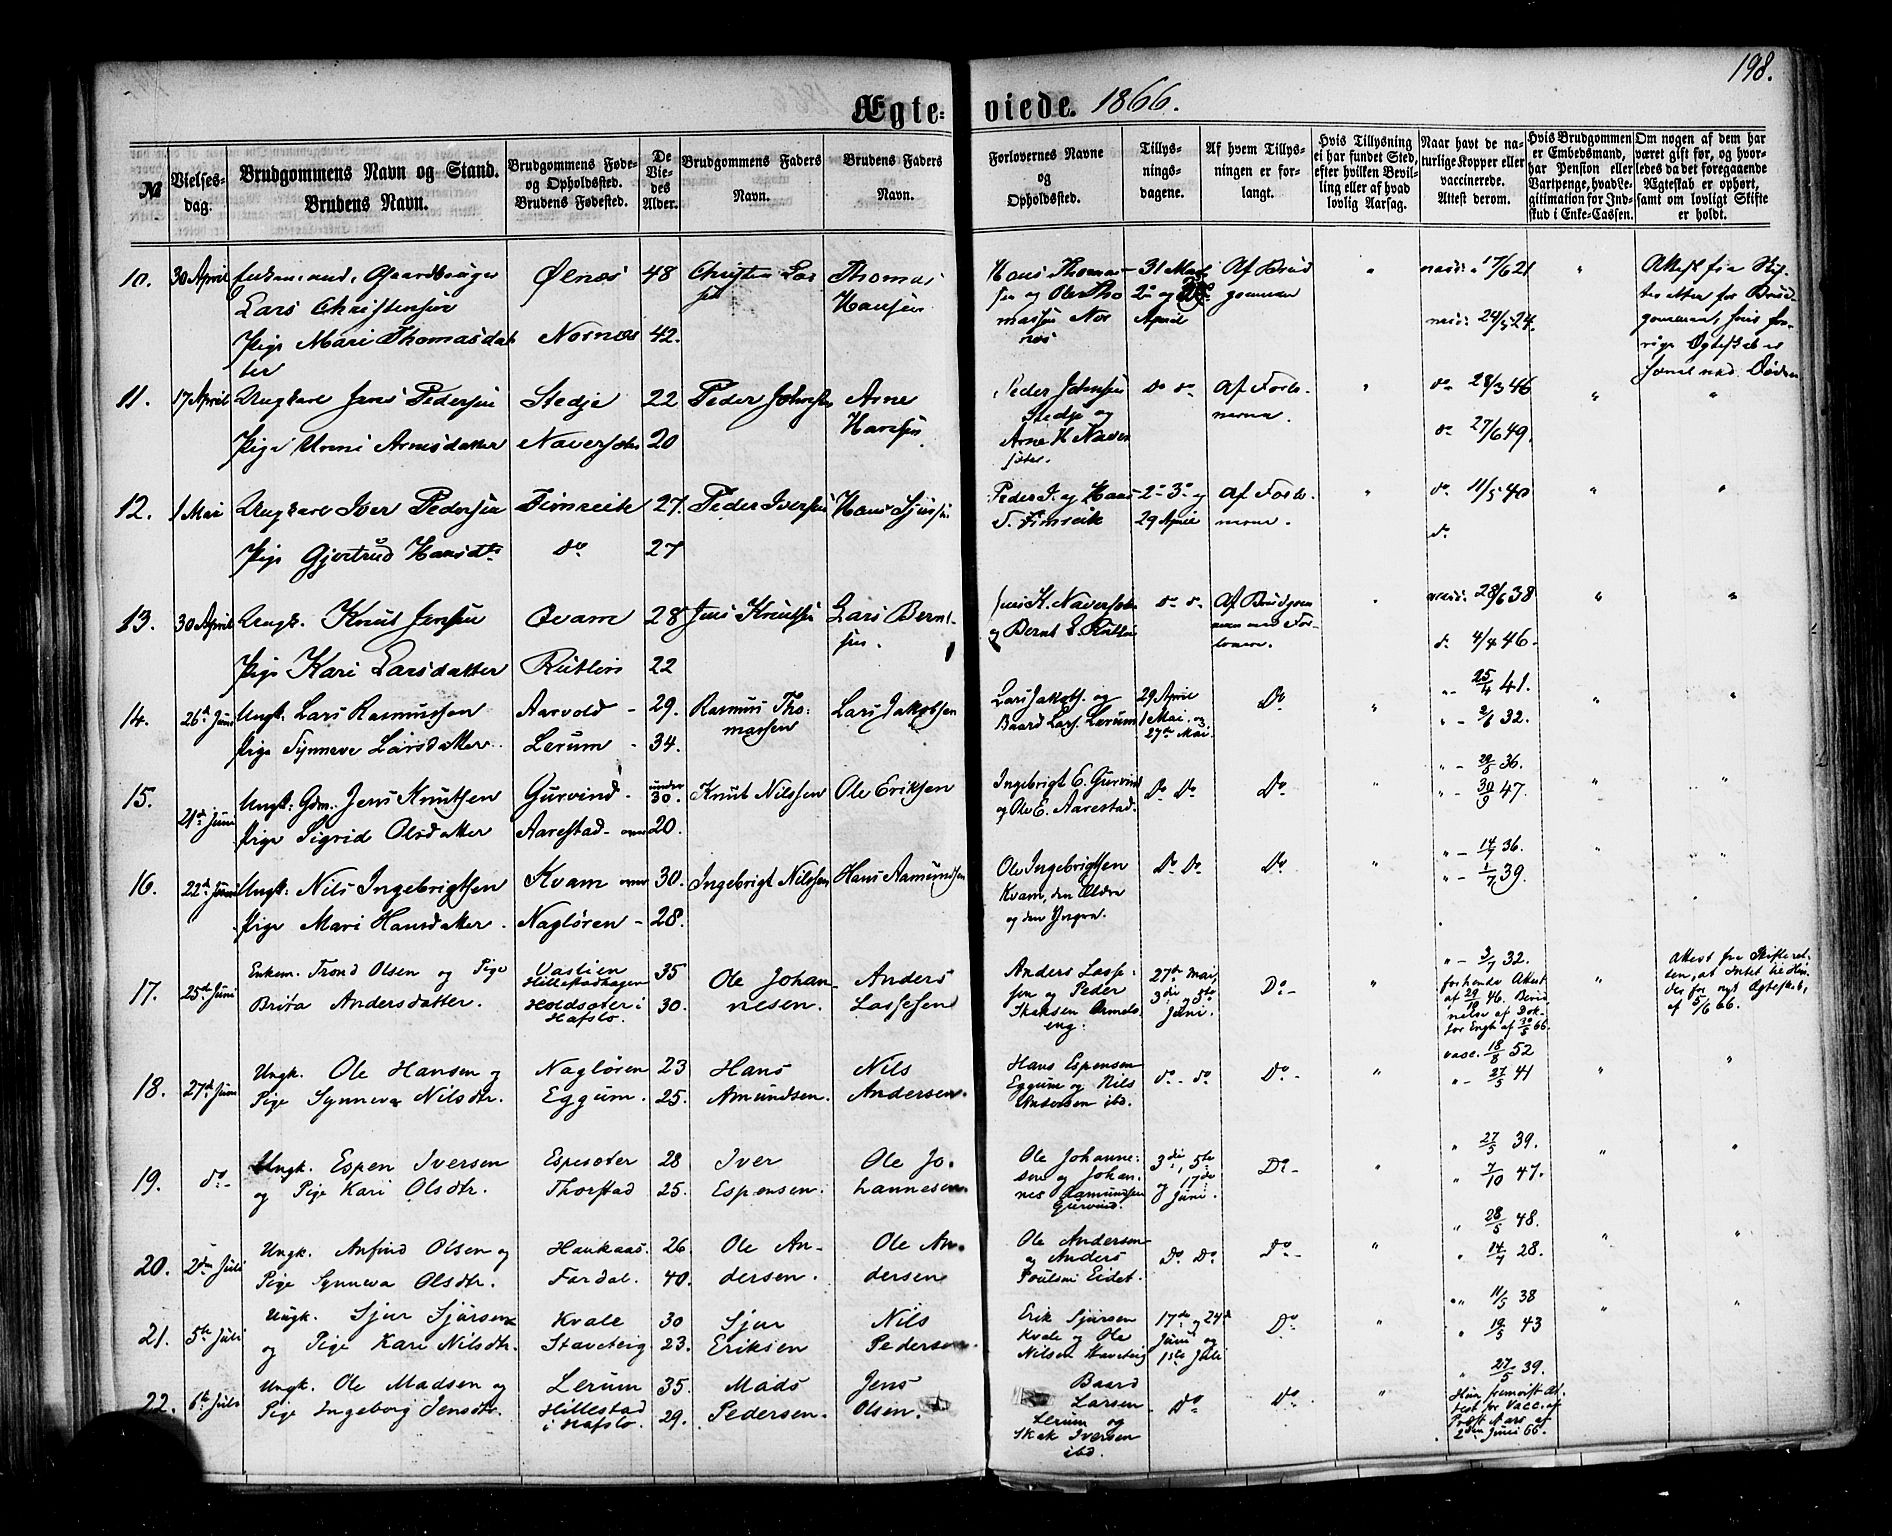 198.
Ægteviede. 1866.
№
Vielsesdag.
Brudgommens Navn og Stand.
Brudens Navn.
Brudgommens Fødeog Opholdssted.
Brudens Fødested.
De Viedes Alder.
Brudgommens Faders Navn.
Brudens Faders Navn.
Forlovernes Navne og Opholdssted.
Tillysningsdagene.
Af hvem Tillysningen er forlangt.
Hvis Tillysning ei har fundet Sted, efter hvilken Bevilling eller af hvad lovlig Aarsag.
Naar havt de naturlige Kopper eller vaccinerede. Attest derom.
Hvis Brudgommen er Embedsmand, har Pension eller Vartpenge, hvad Legitimation for Indskud i Enke-Cassen.
Om nogen af dem har været gift før, og hvorledes da det foregaaende Ægteskab er ophørt, samt om lovligt Skifte er holdt.
10. 30 April Enkem. and. Gaardbruger Ølnæs 48 Christen Lar Thomas Hans Thomas- 31 Mai Af Brud " 17/6 21 " Attest fra Skif
Lars Christensen sen Hansen sen og Ole Tho 2 og April gommen
Pige Mari Thomasdat Nornæs 42. massen Nor 24/5 24.
ter næs
11. 17 April Ungkarl Jens Pedersen Stedje 22 Peder Johnsen Arne Peder Johnsen do do Af Forlo- " do 28/3 46 " "
Hansen Stedje og verne
Pige Unni Arnesdatter Naversæter 20 Arne H Naver do 27/6 49.
sæter.
12. 1 Mai Ungkarl Iver Pedersen Fimreite 27. Peder Iversen Hans Sjursen Peder I. og Hans 2 3 og af Forlo- " do 11/5 40 " "
S. Fimreite 29 April verne.
Pige Gjertrud Hansdtr do 27 do
13. 30 April Ungk. Knut Jensen Qvam 28 Jens Knutsen Lars Bernt- Jens K. Naversæter do do Af Brudgom " 28/6 38 " "
sen. og Bernt L. Rutlin men med Forloveren.
Pige Kari Larsdatter Rutlin 22 do 4/4 46.
14. 26de Juni Ungk. Lars Rasmussen Aarvold - 29. Rasmus Tho- Lars Jakobsen Lars Jakobs. og 29 April Do " " - 25/4 41. " "
massen Baard Lars. Lerum 1 Mai, og
Pige Synneve Larsdatter. Lerum - 34. 27de Mai. " - 2/6 32.
15. 21de Juni Ungk: Gdm. Jens Knutsen Gurvind - under 30. Knut Nilssen Ole Eriksen Ingebrigt E. Gurvind Do Do Do " " - 29/8 36. " "
og Ole E. Aarestad. " - 30/9 47.
Pige Sigrid Olsdatter Aarestad - over 20.
16. 22de Juni Ungk: Nils Ingebrigtsen Kvam over 30. Ingebrigt Nilssen Hans Aamundsen Ole Ingebrigtsen Do Do Do " " - 14/7 36. " "
Kvam, den Ældre " - 1/7 39.
Pige Mari Hansdatter. Nagløren - 28. og den Yngre.
17. 25de Juni Enkem. Trond Olsen og Pige Vaslien Hillestadhagen 35 Ole Johan Anders Anders Lasse- 27de Mai, Do- " " - 2/7 32. " Attest fra Skifteret-
Brita Andersdatter. Holdsæter i Hafslo 30. nesen. Lassesen sen og Peder 3die og 5te foreviste Attest ten, at Intet er til Hin-
Skaksen Ormels Juni. af 29/10 46. der for nyt Ægteskab,
eng. af 30/5 66. af 5/6 66.
18. 27de Juni Ungk. Ole Hansen og Nagløren 23 Hans Nils Hans Espensen do - do Do- " vacc. 18/8 52 " "
Pige Synneva Nilsdtr. Eggum. 25. Amundsen. Andersen. Eggum og Nils " - 27/5 41
Andersen ibd.
19. do- Ungk. Espen Iversen Espesæter 28 Iver Ole Jo- Ole Johanne- 3die, 5te Do- " " 27/5 39. " "
og Pige Kari Olsdtr. Thorstad 25. Espensen. hannesen sen og Johan- og 17de " 7/10 47.
nes Aamundsen Juni.
Gurvind.
20. 2den Juli Ungk. Anfind Olsen og Haukaas. 26. Ole An- Ole An- Ole Andersen Do Do Do- " " 28/5 48. " "
Pige Synneva Olsdtr. Fardal. 40. dersen. dersen og Anders " 14/7 28.
Poulsen Eidet.
21. 5te Juli Ungk. Sjur Sjursen Kvale 30 Sjur Nils Erik Sjursen 17de og 24de Do- " " 11/5 38 " "
og Pige Kari Nilsdtr. Staveteig 23. Eriksen Pedersen Kvale og Ole Juni og " 19/5 43
Nilsen Staveteig 1ste Juli
22. 6te Juli Ungk. Ole Madsen og Lerum 35. Mads Jens Baard Do- Do- " " 27/5 39.
Pige Ingeborg Jensdtr. Hillestad i Hafslo. 29. Pedersen. Olsen. Larsen Hun fremvist At-
Lerum og test for Vacc. af
Skak Iversen Provst Aars af
ibd. 2den Juni 66.